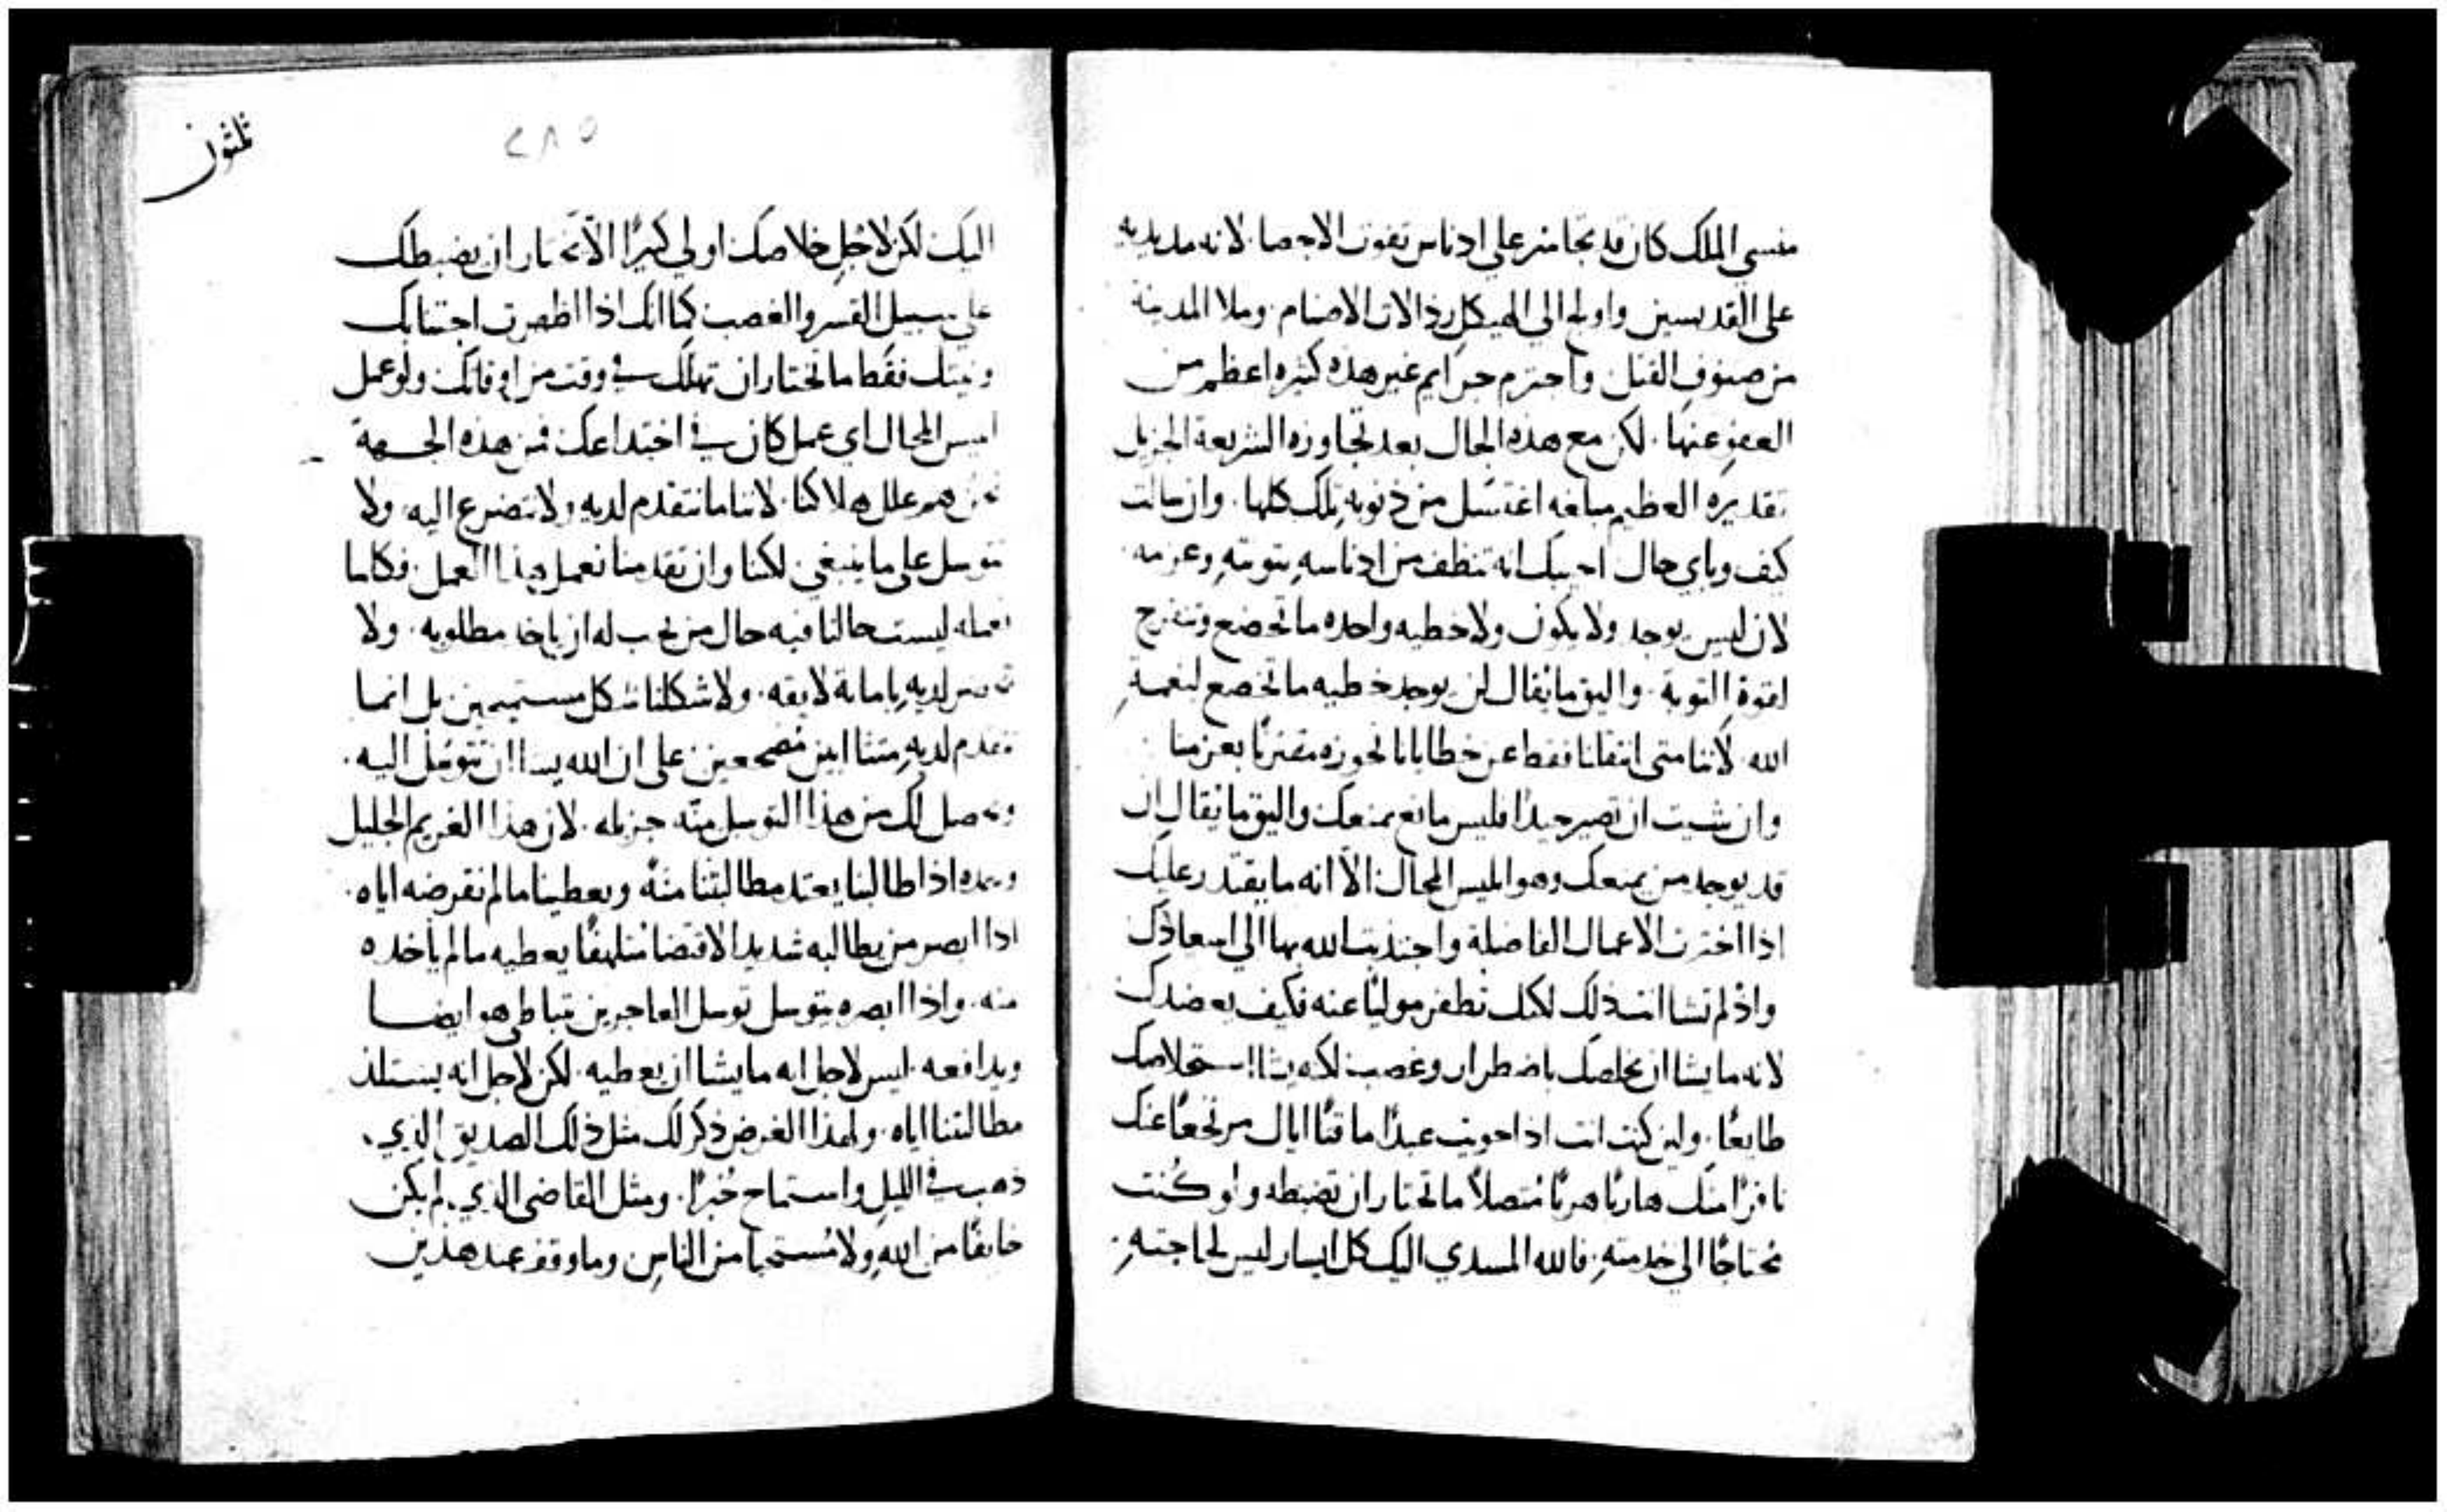 منسي الملك كان قد تجاسر على ادناس تفوت الاحصا. لانه مد يديه
على القديسين واولج الى الهيكل رذالات الاصنام. وملا المدينة
من صنوف القتل واجترم جرايم غير هذه كثيره اعظم من
العفو عنها. لكن مع هذه الحال بعد تجاوزه الشريعة الجزيل
تقديره العظيم مبلغه اغتسل من ذنوبه تلك كلها. وان سالت
كيف وباي حال اجيبك انه تنظف من ادناسه بتوبته وعزمه
لان ليس يوجد ولا يكون ولا خطيه واحده ما تخضع وتنفرج
لقوة التوبة. واليق ما يقال لن يوجد خطيه ما تخضع لنعمة
الله. لاننا متى انتقلنا فقط عن خطايانا نحوزه مقترنا بعزمنا
وان شيت ان تصير جيدا فليس مانع يمنعك واليق ما يقال ان
قد يوجد من يمنعك وهو ابليس المحال الا انه ما يقتدر عليك
اذا اخترت الاعمال الفاضلة واجتذبت الله بها الى اسعادك
واذ لم تشا انت ذلك لكنك تطفر موليا عنه فكيف يعضدك
لانه ما يشا ان يخلصك باضطرار وغصب لكنه يشا استخلاصك
طايعا. ولين كنت انت اذا حويت عبدا ماقتا اياك مرتجعا عنك
نافرا منك هاربا هربا متصلا ما تختار ان تضبطه ولو كنت
محتاجا الى خدمته. فالله المسدي اليك كل ايسار ليس لحاجته
٢٨٥
ثلثون
اليك لكن لاجل خلاصك اولي كثيرا الا يختار ان يضبطك
على سبيل القسر والغصب كما انك اذا اظهرت اجتنابك
ونيتك فقط ما تختار ان تهلك في وقت من اوقاتك ولو عمل
ابليس المحال اي عمل كان في اختداعك فمن هذه الجهة
نحن هم علل هلاكنا. لاننا ما نتقدم لديه ولا نتضرع اليه ولا
نتوسل على ما ينبغي لكنا وان تقدمنا نعمل هذا العمل. فكلما
نعمله ليست حالنا فيه حال من يجب له ان ياخذ مطلوبه. ولا
لديه بامانة لايقه. ولا شكلنا شكل مستميحين بل انما
نتقدم لديه متثاابين مضجعين على ان الله يشا ان نتوسل اليه.
ويحصل لك من هذا التوسل منة جزيله. لان هذا الغريم الجليل
وحده اذا طالبنا يعتد مطالبتنا منة ويعطينا ما لم نقرضه اياه.
اذا ابصر من يطالبه شديد الاقتضا متلهفا يعطيه ما لم ياخذه
منه. واذا ابصره يتوسل توسل العاجزين يتباطى هو ايضا
ويدافعه. ليس لاجل انه ما يشا ان يعطيه. لكن لاجل انه يستلذ
مطالبتنا اياه. ولهذا الغرض ذكر لك مثل ذلك الصديق الذي
ذهب في الليل واستماح خبزا. ومثل القاضي الذي لم يكن
خايفا من الله ولا مستحيا من الناس وما وقف عند هذين